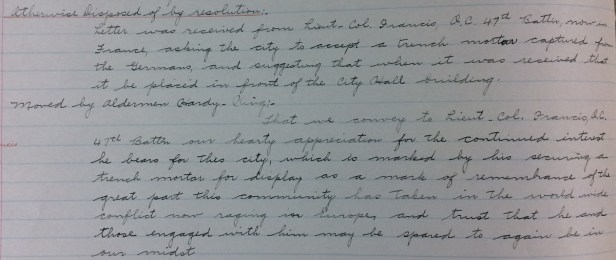 otherwise disposed of by resolution:-
Letter was received from Lieut-Col. Francis, O.C. 47th Battn, now in
France, asking the city to accept a trench mortar captured from
the Germans, and suggesting that when it was received that
it be placed in front of the City Hall building.
Moved by Aldermen Gardy-
That we convey to Lieut-Col. Francis, O.C.
47th Battn our hearty appreciation for the continued interest
he bears for this city, which is marked by his securing a
trench mortar for display as a mark of remembrance of the
great part this community has taken in the world wide
conflict now raging in Europe, and trust that he and
those engaged with him may be spared to again be in
our midst